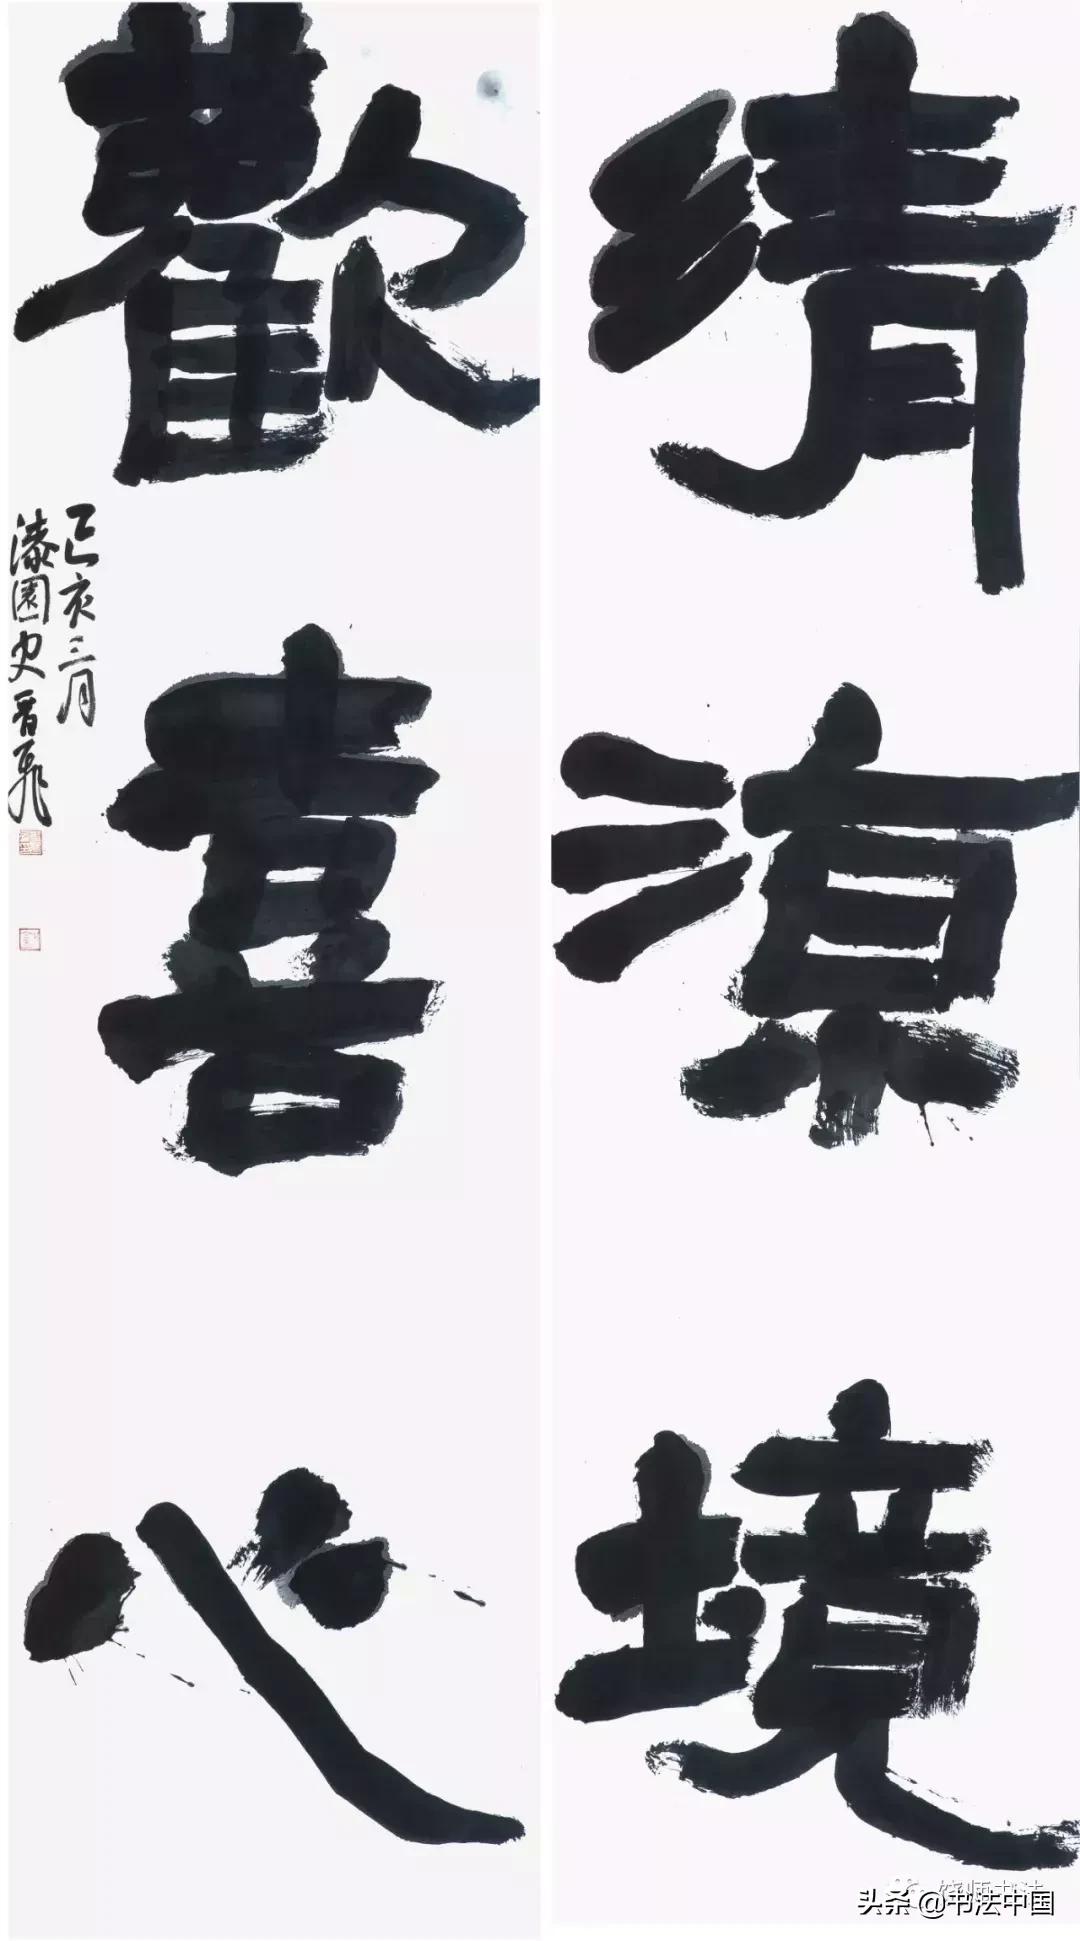 清涼境
歡喜心
己亥三月
漆園史晋飛
头条 @书法中国